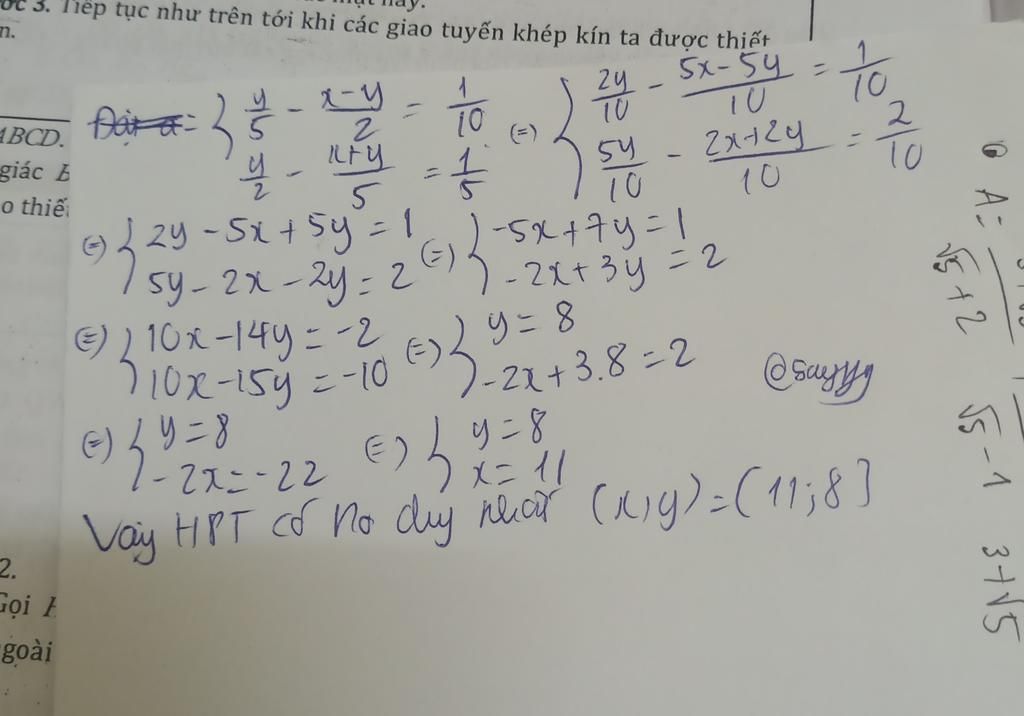 ớc 3. Tiếp tục như trên tới khi các giao tuyến khép kín ta được thiết
n.
ABCD.
giác E
o thiế
Đặt a = { y/5 - (x-y)/2 = 1/10 (=) { 2y/10 - (5x-5y)/10 = 1/10
y/2 - (x+y)/5 = 1/5 5y/10 - (2x+2y)/10 = 2/10
(=) { 2y - 5x + 5y = 1 (=) { -5x + 7y = 1
5y - 2x - 2y = 2 -2x + 3y = 2
(=) { 10x - 14y = -2 (=) { y = 8
10x - 15y = -10 -2x + 3.8 = 2
@sayyg
(=) { y = 8 (=) { y = 8
-2x = -22 x = 11
Vậy HPT có no duy nhất (x,y) = (11;8]
2.
Gọi H
goài
A =
√5 + 2
√5 - 1
3+√5